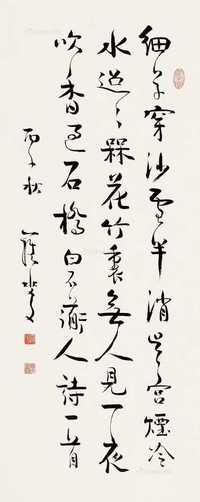 細草穿沙雪半消吳宮煙冷
水迢〻槑花竹裏無人見一夜
吹香過石橋白石衜人詩一首
丙子秋